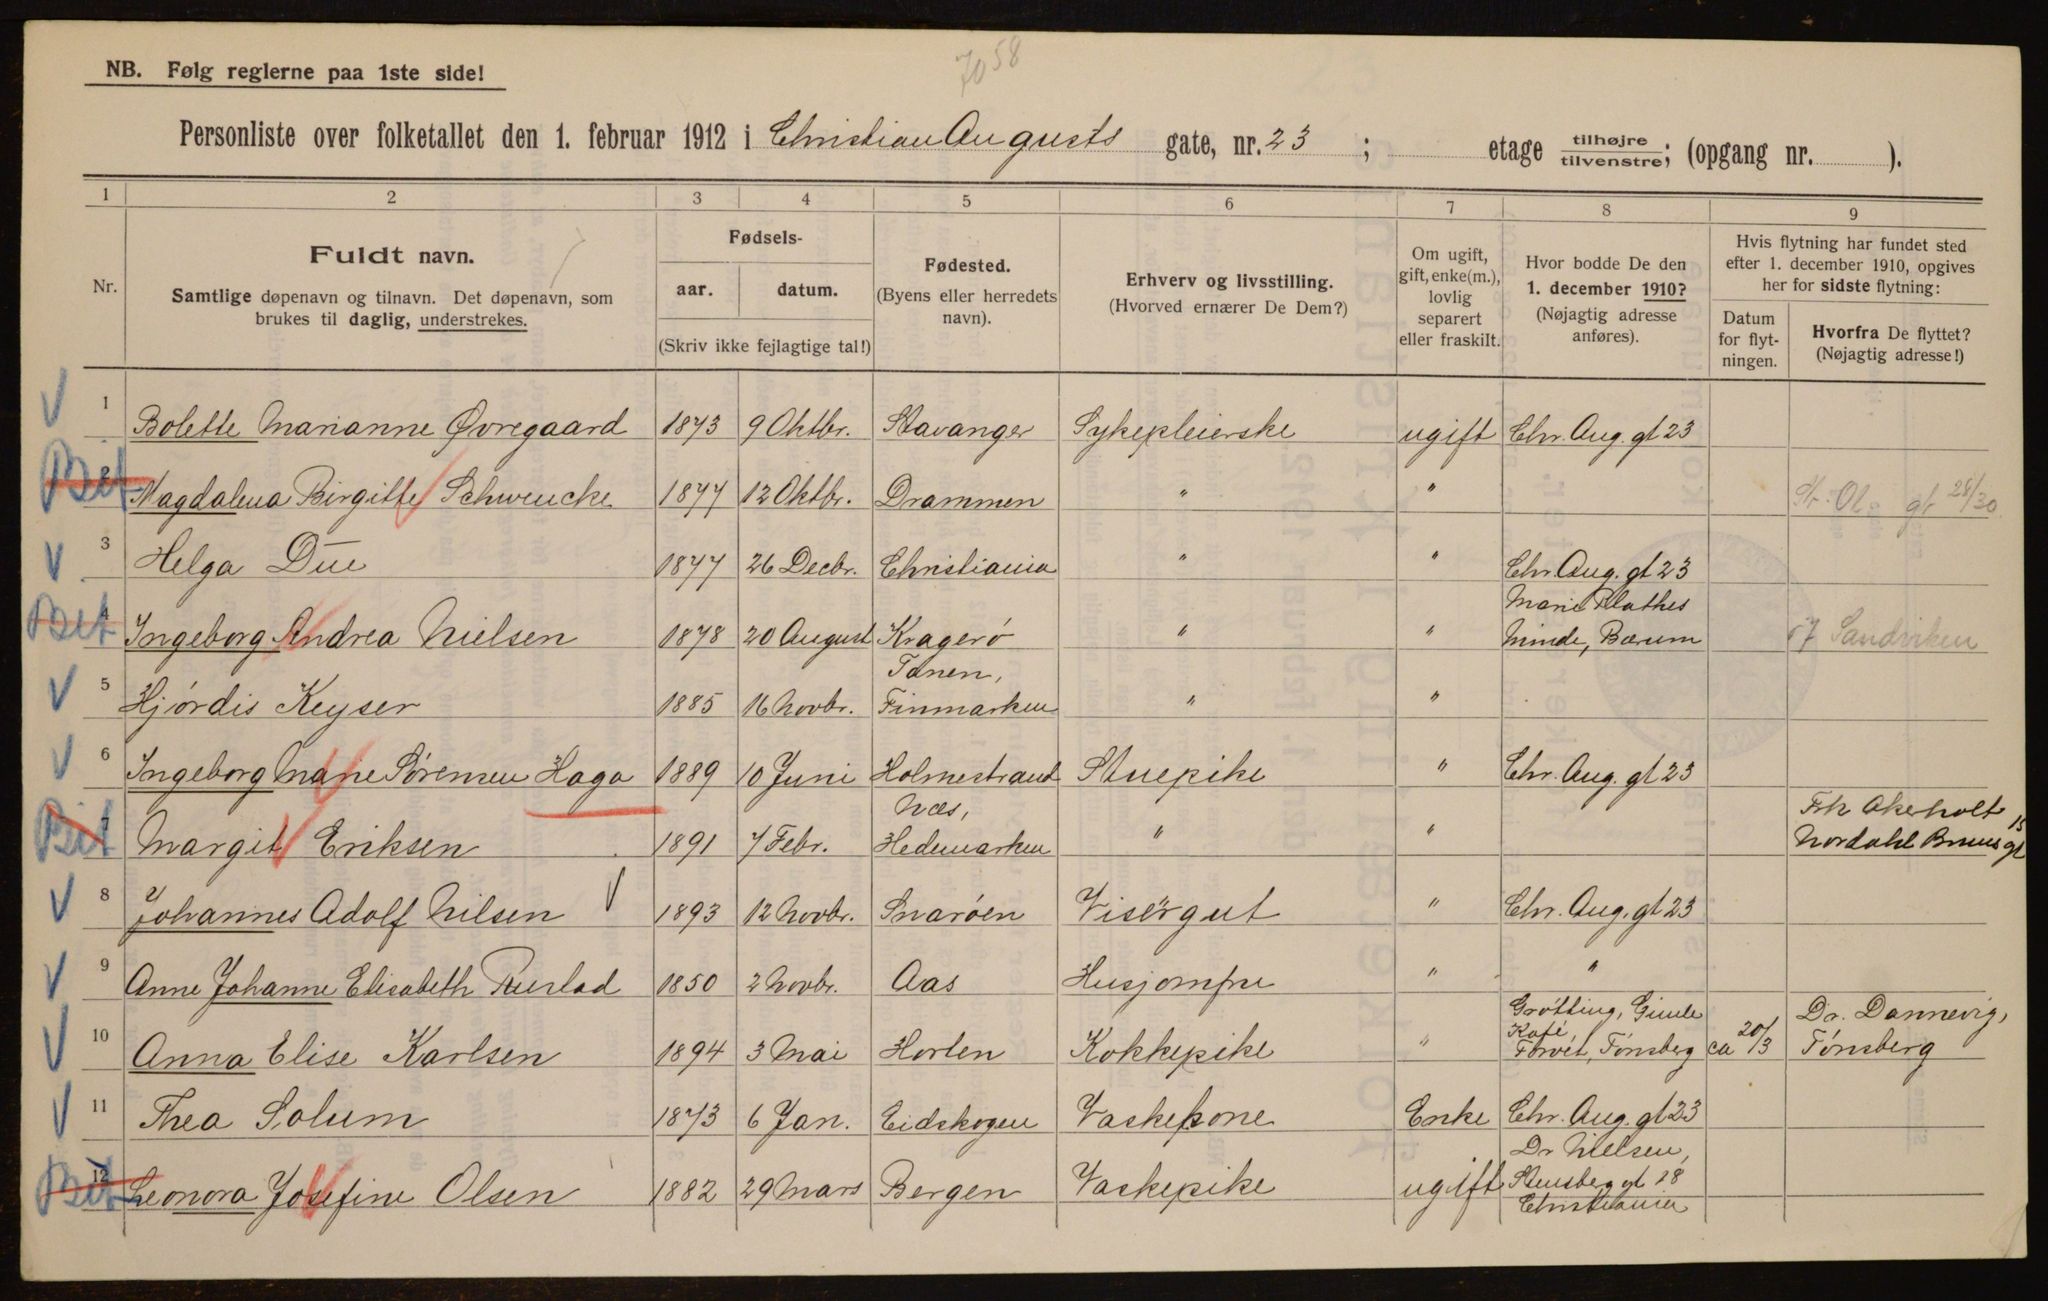 7058
NB. Følg reglerne paa 1ste side!
Personliste over folketallet den 1. februar 1912 i Christian Augusts gate, nr. 23 ; etage tilhøjre tilvenstre; (opgang nr. ).
1 2 3 4 5 6 7 8 9
Nr.
Fuldt navn.
Samtlige døpenavn og tilnavn. Det døpenavn, som
brukes til daglig, understrekes.
Fødsels-
aar. datum.
(Skriv ikke fejlagtige tal!)
Fødested.
(Byens eller herredets
navn).
Erhverv og livsstilling.
(Hvorved ernærer De Dem?)
Om ugift,
gift, enke(m.),
lovlig
separert
eller fraskilt.
Hvor bodde De den
1. december 1910?
(Nøjagtig adresse
anføres).
Hvis flytning har fundet sted
efter 1. december 1910, opgives
her for sidste flytning:
Datum
for flyt-
ningen.
Hvorfra De flyttet?
(Nøjagtig adresse!)
1 Bolette Marianne Øvregaard 1873 9 Oktbr. Stavanger Sykepleierske ugift Chr. Aug. gt 23
Bet 2 Magdalena Birgitte Schwencke 1877 12 Oktbr. Drammen " " St. Ol. gt 28/30
3 Helga Due 1877 26 Decbr. Christiania " " Chr. Aug. gt 23
Bet 4 Ingeborg Andrea Nielsen 1878 20 August Kragerö " " Marie Plathes
Minde, Bærum Sandviken
5 Hjördis Keyser 1885 16 Novbr. Tanen,
Finmarken " "
6 Ingeborg Marie Sörensen Haga 1889 10 Juni Holmestrand Stuepike " Chr. Aug. gt 23
Bet 7 Margit Eriksen 1891 7 Febr. Næs,
Hedemarken " " Frk Akerholt
Nordahl Bruns gt 15
8 Johannes Adolf Nilsen 1893 12 Novbr. Snaröen Visergut " Chr. Aug. gt 23
9 Anne Johanne Elisabeth Rustad 1850 2 Novbr. Aas Husjomfru " "
10 Anna Elise Karlsen 1894 3 Mai Horten Kokkepike " Grötting, Gimle
Kafé,
Torvet, Tönsberg ca 20/3 Dr. Dannevig,
Tönsberg
11 Thea Solum 1873 6 Jan. Eidskogen Vaskekone Enke Chr. Aug. gt 23
Bet 12 Leonora Josefine Olsen 1882 29 Mars Bergen Vaskepike ugift Dr Nielsen,
Stensberg gt 18
Christiania